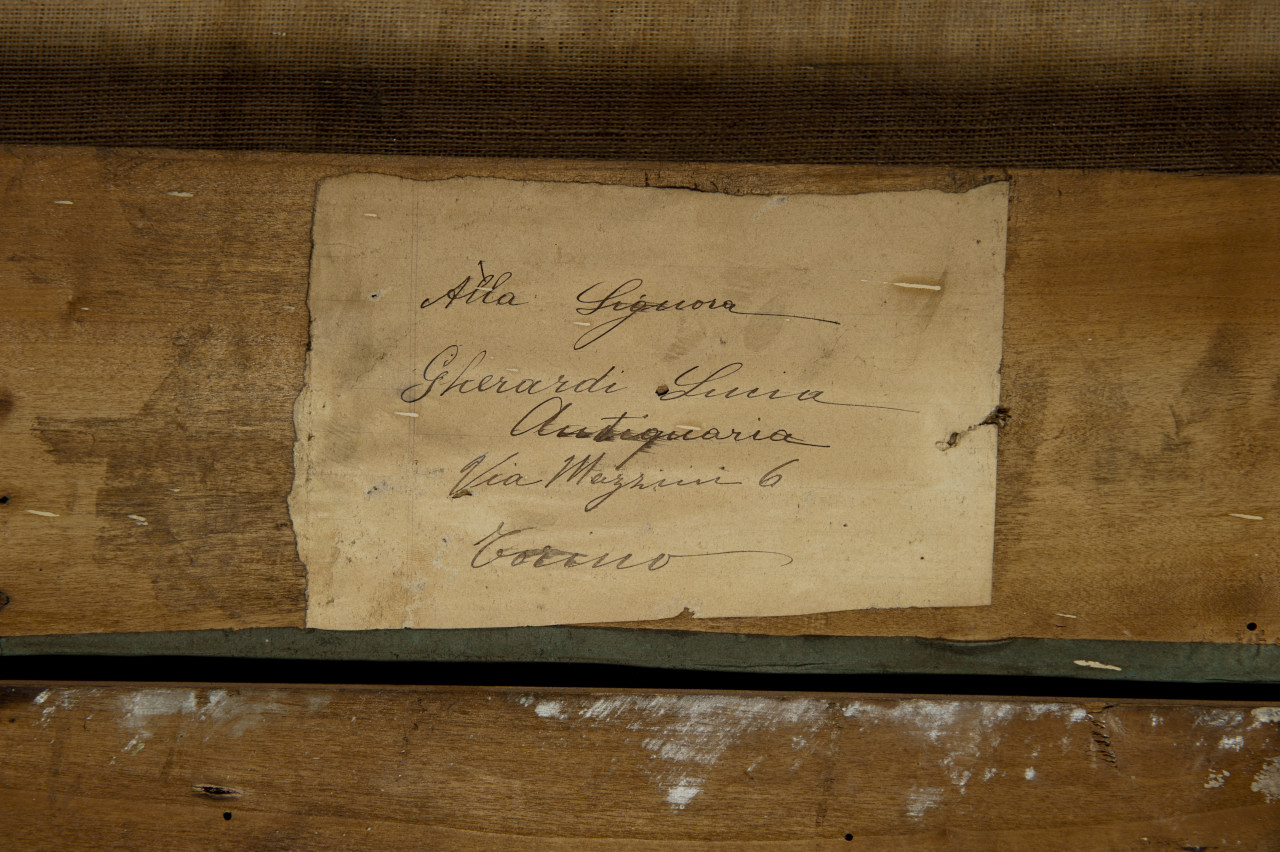 Alla Signora
Gherardi Lucia
Antiquaria
Via Mazzini 6
Torino